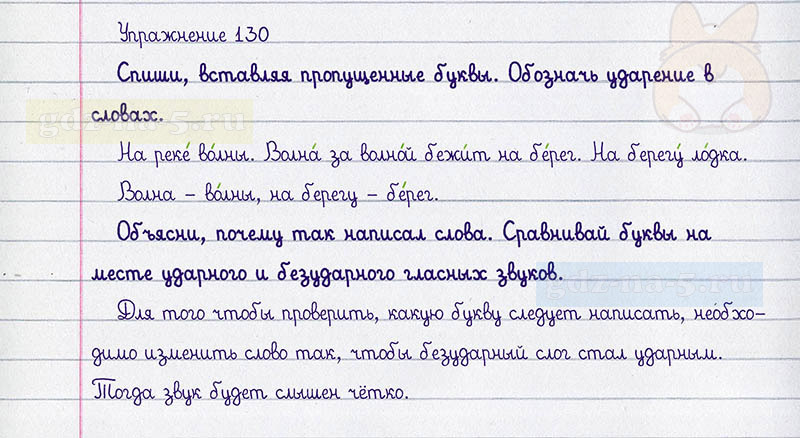 Упражнение 130
Спиши, вставляя пропущенные буквы. Обозначь ударение в
словах.
gdz-na-5.ru
На реке́ во́лны. Волна́ за волно́й бежи́т на бе́рег. На берегу́ ло́дка.
Волна – во́лны, на берегу – бе́рег.
Объясни, почему так написал слова. Сравнивай буквы на
месте ударного и безударного гласных звуков.
gdz-na-5.ru
Для того чтобы проверить, какую букву следует написать, необхо-
димо изменить слово так, чтобы безударный слог стал ударным.
Тогда звук будет слышен чётко.